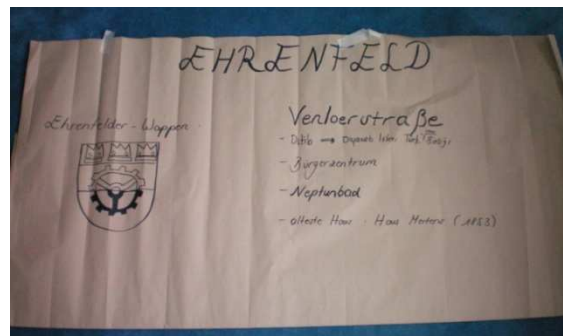 EHRENFELD
Ehrenfelder-Wappen
Venloerstraße
- Ditib → Islam. Türk.
- Bürgerzentrum
- Neptunbad
- älteste Haus - Haus Mertens (1853)